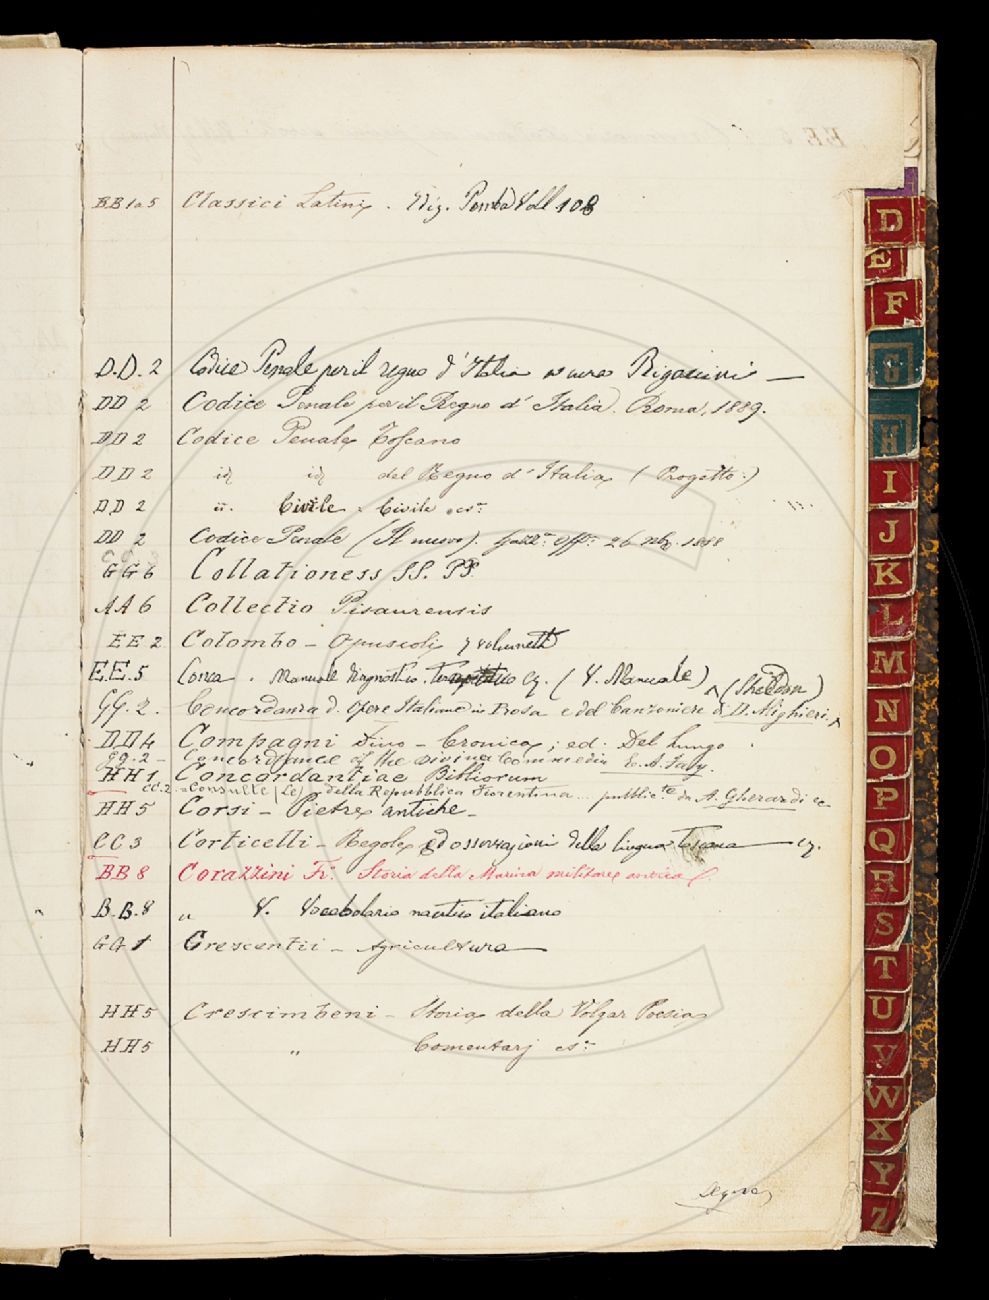 BB 1a5 Classici Latini. Ediz. Pomba Voll 108
D.D. 2 Codice Penale per il regno d'Italia
DD 2 Codice Penale per il Regno d'Italia. Roma, 1889.
DD 2 Codice Penale Toscano
DD 2 id id del Regno d'Italia (Progetto.)
DD 2 Civile
DD 2 Codice Penale (Il nuovo).
GG 6 Collationess SS. PP.
AA 6 Collectio Pisaurensis
EE 2 Colombo - Opuscoli 7 volumetti
EE. 5 Conca. Manuale diagnostico. (V. Manuale) (Sheldon)
GG. 2. Concordanza d. opere Italiane in Prosa e del Canzoniere di D. Alighieri.
DD 4 Compagni Dino - Cronica; ed: Del Lungo
GG. 2 - Concordance of the divina Commedia E. A. Fay.
HH 1 Concordantiae Bibliorum
CC. 2 Consulte (Le) della Repubblica Fiorentina ... pubblic.te da A. Gherardi ec
HH 5 Corsi - Pietre antiche -
CC 3 Corticelli - Regole ed osservazioni della lingua toscana
BB 8 Corazzini F. Storia della Marina militare antica
B.B. 8 " V. Vocabolario nautico italiano
GG 1 Crescentii - Agricultura
HH 5 Crescimbeni - Storia della Volgar Poesia
HH 5 " Comentarj
D
E
F
G
H
I
J
K
L
M
N
O
P
Q
R
S
T
U
V
W
X
Y
Z